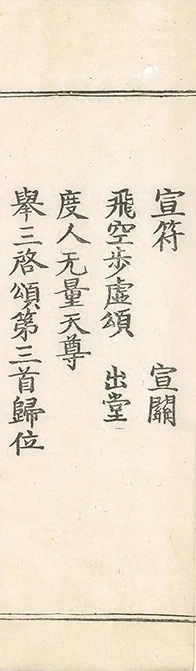 宣符 宣關
飛空步虛頌 出堂
度人无量天尊
舉三啓頌第三首歸位